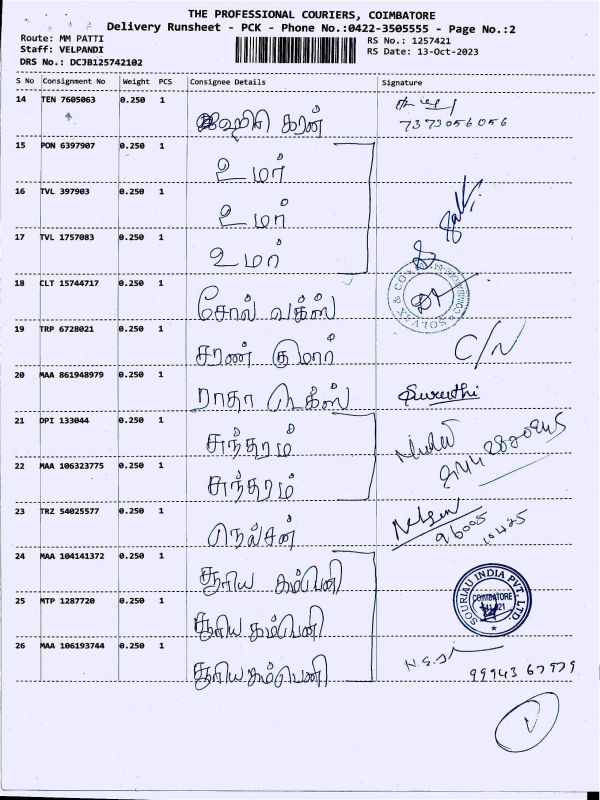 THE PROFESSIONAL COURIERS, COIMBATORE
Delivery Runsheet - PCK - Phone No.:0422-3505555 - Page No.:2
Route: MM PATTI
RS No.: 1257421
Staff: VELPANDI
RS Date: 13-Oct-2023
DRS No.: DCJB125742102
S No Consignment No Weight PCS Consignee Details Signature
14 TEN 7605063 0.250 1 ஹரி கரன்
7373056056
15 PON 6397907 0.250 1 உமர்
16 TVL 397903 0.250 1 உமர்
17 TVL 1757083 0.250 1 உமர்
18 CLT 15744717 0.250 1 சோல் வக்ஸ்
SOLVAX & CO
19 TRP 6728021 0.250 1 சரண் குமார் C/N
20 MAA 861948979 0.250 1 ராதா டெக்ஸ்
21 DPI 133044 0.250 1 சுந்தரம்
22 MAA 106323775 0.250 1 சுந்தரம்
23 TRZ 54025577 0.250 1 நெல்சன் Nelson
96005
10425
24 MAA 104141372 0.250 1 சூரிய கம்பெனி
25 MTP 1287720 0.250 1 சூரிய கம்பெனி
SOURIAU INDIA PVT. LTD.
COIMBATORE
26 MAA 106193744 0.250 1 சூரிய கம்பெனி